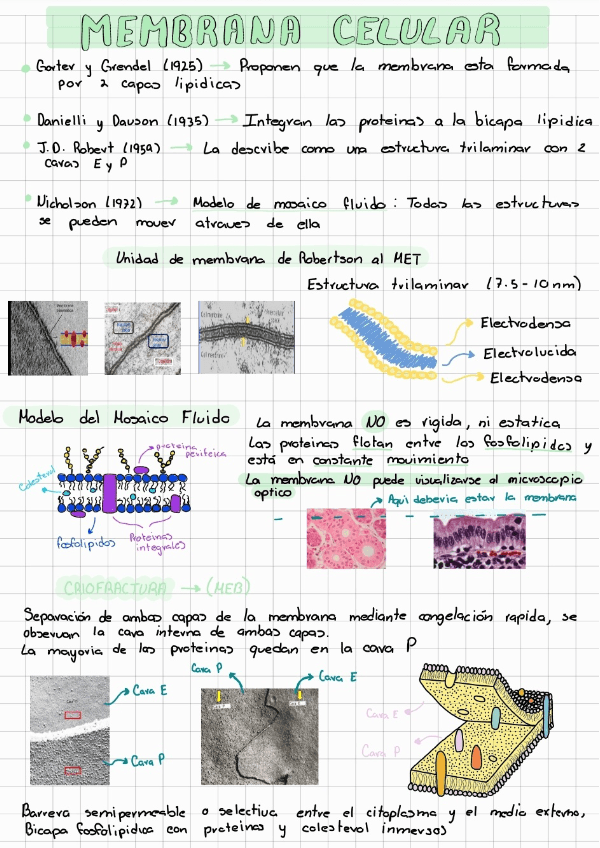 MEMBRANA CELULAR
Gorter y Grendel (1925) → Proponen que la membrana esta formada
por 2 capas lipidicas
Danielli y Dauson (1935) → Integran las proteinas a la bicapa lipidica
J.D. Robert (1959) → La describe como una estructura trilaminar con 2
caras E y P
Nicholson (1972) → Modelo de mosaico fluido : Todas las estructuras
se pueden mover atraves de ella
Unidad de membrana de Robertson al MET
Estructura trilaminar (7.5-10nm)
Electrodensa
Electrolucida
Electrodensa
Modelo del Mosaico Fluido
proteina
periferica
Colesterol
fosfolipidos
Proteinas
integrales
La membrana NO es rigida, ni estatica
Las proteinas flotan entre los fosfolipidos y
está en constante movimiento
La membrana NO puede visualizarse al microscopio
optico
Aqui deberia estar la membrana
CRIOFRACTURA → (MEB)
Separación de ambas capas de la membrana mediante congelación rapida, se
observan la cara interna de ambas capas.
La mayoria de las proteinas quedan en la cara P
Cara E
Cara P
Cara P
Cara E
Cara E
Cara P
Barrera semipermeable o selectiva entre el citoplasma y el medio externo,
Bicapa fosfolipidica con proteinas y colesterol inmersos